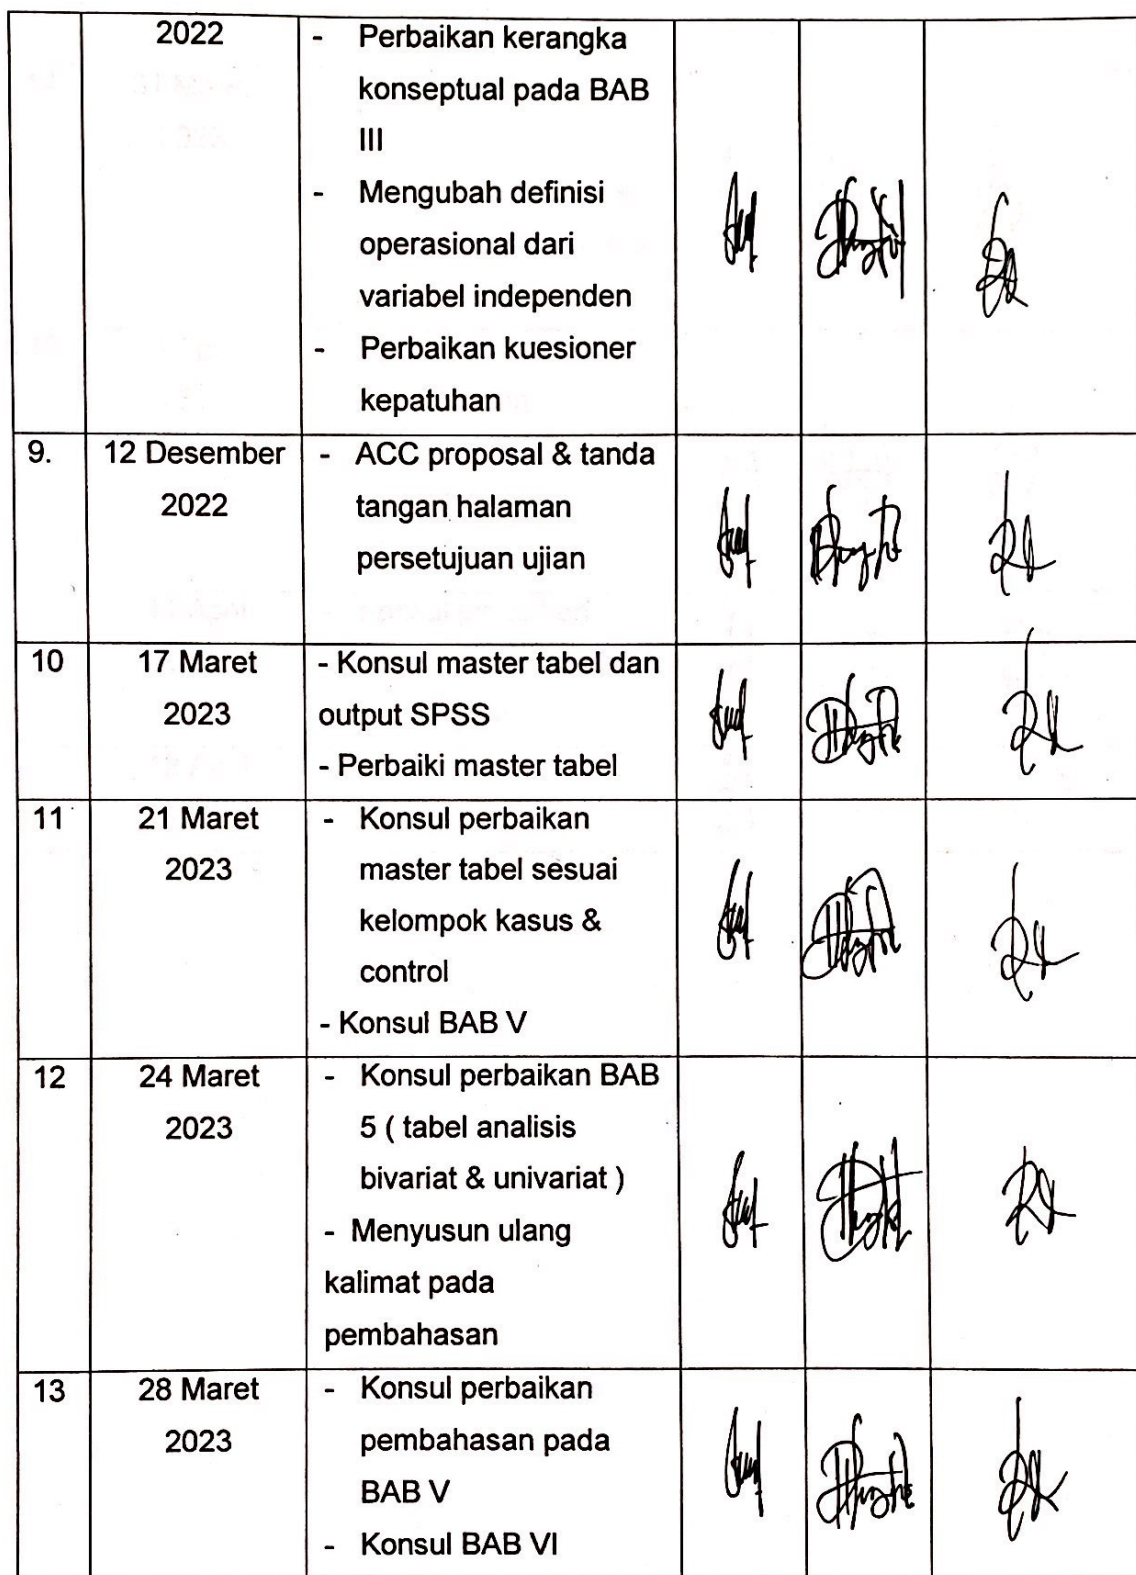 2022
- Perbaikan kerangka
konseptual pada BAB
III
- Mengubah definisi
operasional dari
variabel independen
- Perbaikan kuesioner
kepatuhan
9.
12 Desember
2022
- ACC proposal & tanda
tangan halaman
persetujuan ujian
10
17 Maret
2023
- Konsul master tabel dan
output SPSS
- Perbaiki master tabel
11
21 Maret
2023
- Konsul perbaikan
master tabel sesuai
kelompok kasus &
control
- Konsul BAB V
12
24 Maret
2023
- Konsul perbaikan BAB
5 ( tabel analisis
bivariat & univariat )
- Menyusun ulang
kalimat pada
pembahasan
13
28 Maret
2023
- Konsul perbaikan
pembahasan pada
BAB V
- Konsul BAB VI